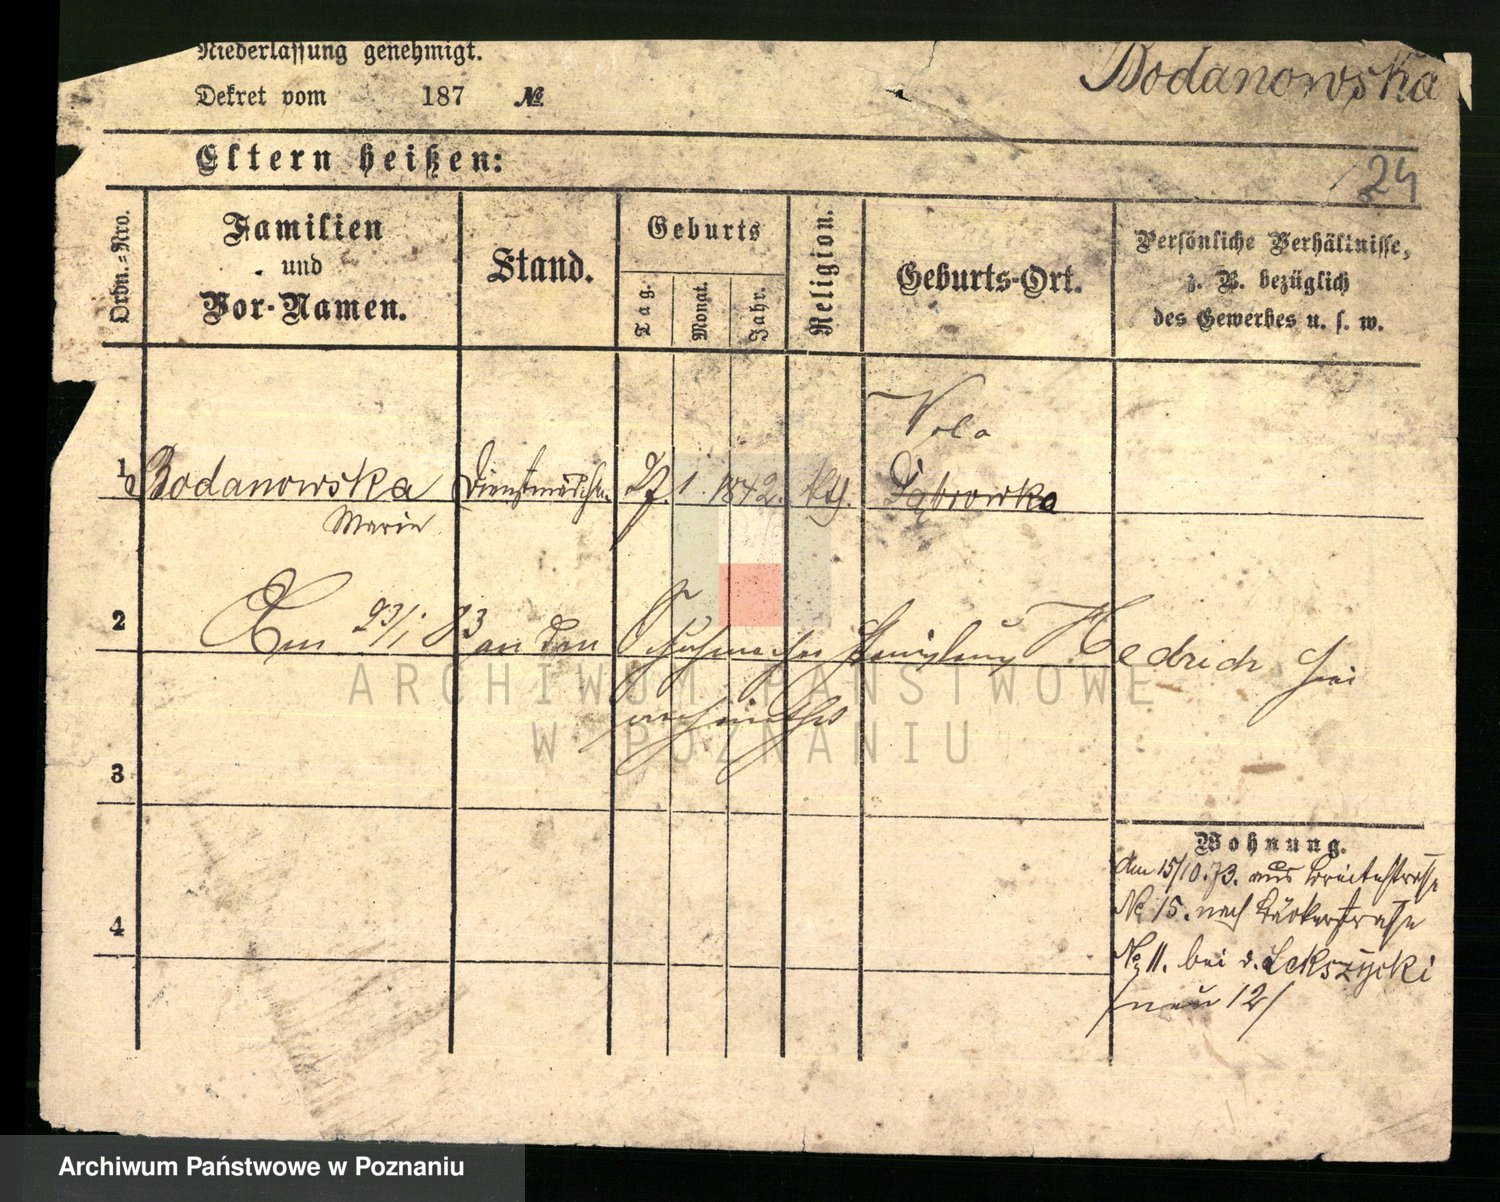 Niederlassung genehmigt.
Dekret vom 187 №
Bodanowska
Eltern heißen:
24
Ordn.-Nro.
Familien
und
Vor-Namen.
Stand.
Geburts
Tag.
Monat.
Jahr.
Religion.
Geburts-Ort.
Persönliche Verhältnisse,
z. B. bezüglich
des Gewerbes u. s. w.
1 Bodanowska Dienstmädchen 27. 1. 1842. Dąbrowka
Marie
2 Am 23/1 83 an den Schuhmacher Hedrich hier
verheirathet
3
4
Wohnung.
Am 15/10.73. aus Breitestraße
No 15. nach Bäckerstraße
No 11. bei d. Lekszycki
/neu 12/
ARCHIWUM PAŃSTWOWE
W POZNANIU
Archiwum Państwowe w Poznaniu